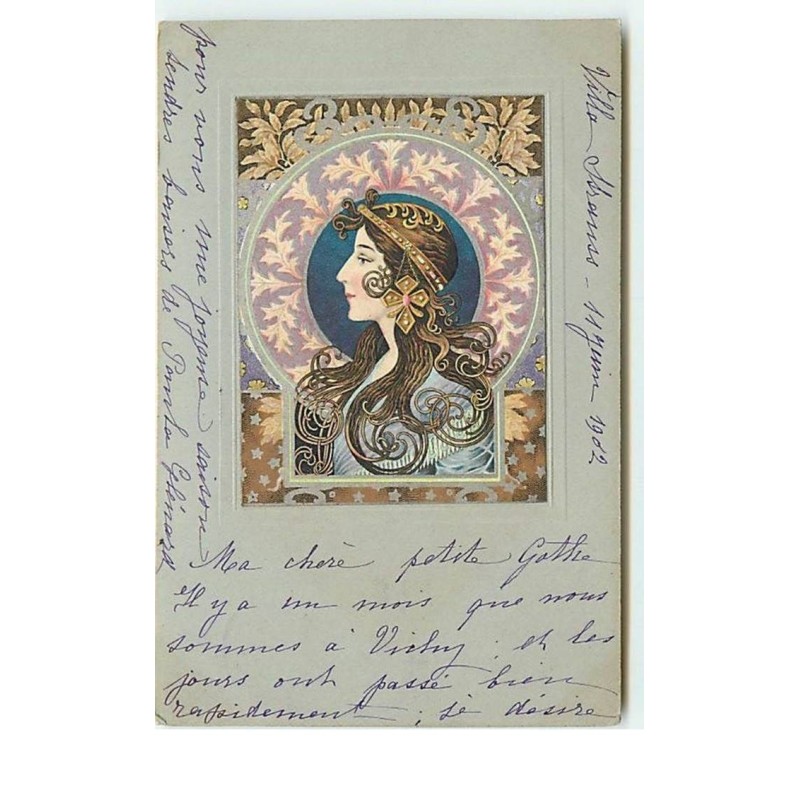 Villa Strauss - 11 juin 1902
Ma chère petite Gothe
Il y a un mois que nous
sommes à Vichy ; et les
jours ont passé bien
rapidement ; je désire
pour vous une joyeuse saison
tendres baisers de Paula Glénard